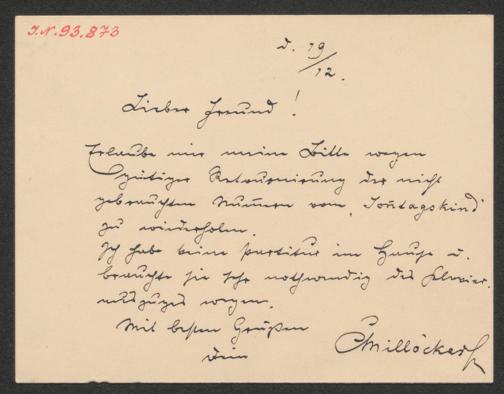 I.N. 93.873
d. 19/12.
Lieber Freund!
Erlaube mir meine Bitte wegen
gütiger Retournierung der nicht
gebrauchten Nummern vom „Sonntagskind"
zu wiederholen.
Ich habe keine Partitur im Hause u.
brauchte sie sehr nothwendig des Klavier-
auszuges wegen.
Mit besten Grüßen
Dein
CMillöcker